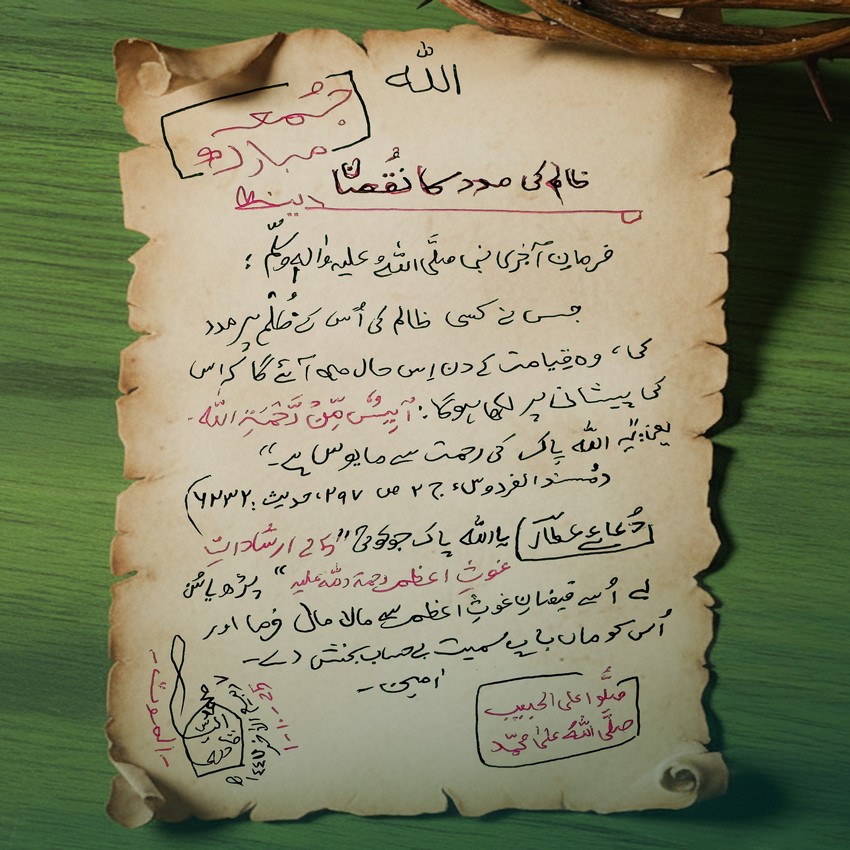 اللہ
جُمعہ
مبارک
ظالم کی مدد کا نُقصان
فرمانِ آخری نبی صلَّی اللہُ علیہ واٰلہٖ وسلَّم :
جس نے کسی ظالم کی اُس کے ظُلْم پر مدد
کی، وہ قِیامت کے دن اِس حال میں آئے گا کہ اس
کی پیشانی پر لکھا ہوگا: اٰیِسٌ مِّنْ رَّحْمَۃِ اللہ۔
یعنی: "یہ اللہ پاک کی رحمت سے مایوس ہے۔"
(مُسندُ الفردوس، ج ۲ ص ۲۹۷، حدیث: ۶۲۳۲)
دُعائے عطّار یااللہ پاک جو کوئی " ارشاداتِ
غوثِ اعظم رحمۃ اللہ علیہ" پڑھ یا سُن
لے اُسے فیضانِ غوثِ اعظم سے مالا مال فرما اور
اُس کو ماں باپ سمیت بے حساب بخش دے۔
اٰمین۔
صلُّوا علی الحبیب
صلَّی اللہُ علیٰ محمّد
الموت